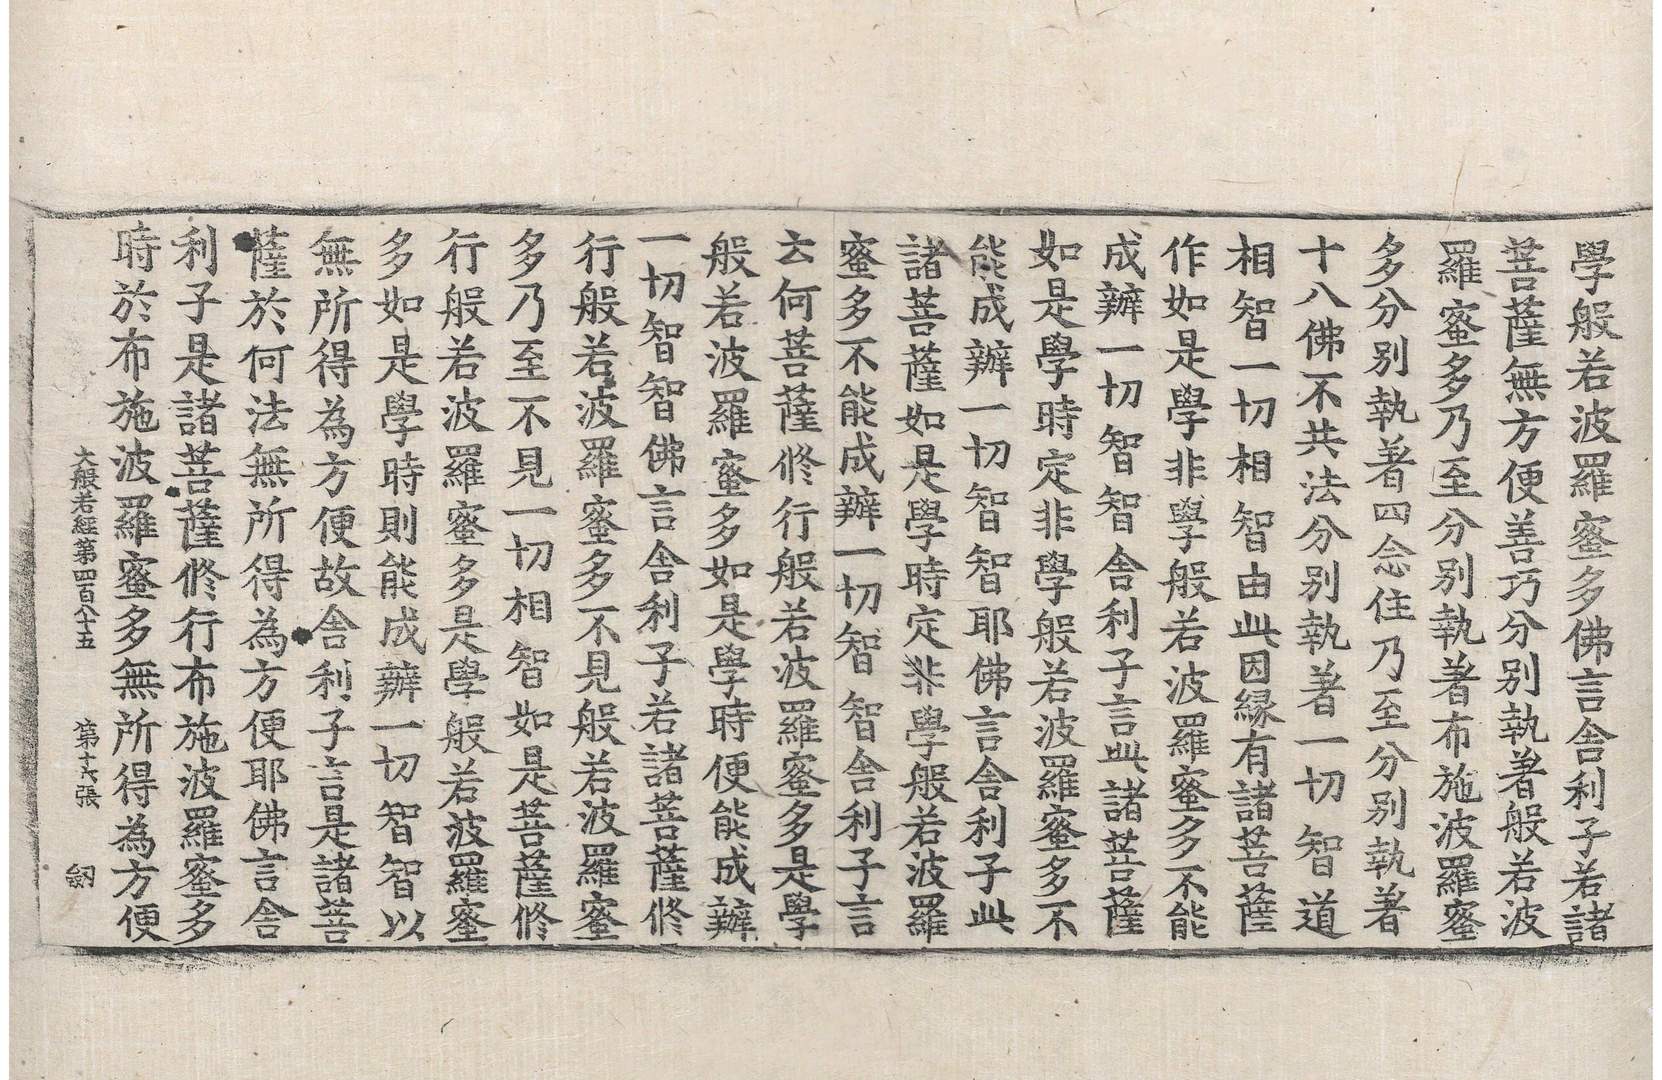 學般若波羅蜜多佛言舍利子若諸
菩薩無方便善巧分別執著般若波
羅蜜多乃至分別執著布施波羅蜜
多分別執著四念住乃至分別執著
十八佛不共法分別執著一切智道
相智一切相智由此因緣有諸菩薩
作如是學非學般若波羅蜜多不能
成辦一切智智舍利子言此諸菩薩
如是學時定非學般若波羅蜜多不
能成辦一切智智耶佛言舍利子此
諸菩薩如是學時定非學般若波羅
蜜多不能成辦一切智智舍利子言
云何菩薩修行般若波羅蜜多是學
般若波羅蜜多如是學時便能成辦
一切智智佛言舍利子若諸菩薩修
行般若波羅蜜多不見般若波羅蜜
多乃至不見一切相智如是菩薩修
行般若波羅蜜多是學般若波羅蜜
多如是學時則能成辦一切智智以
無所得為方便故舍利子言是諸菩
薩於何法無所得為方便耶佛言舍
利子是諸菩薩修行布施波羅蜜多
時於布施波羅蜜多無所得為方便
大般若經第四百八十五 第十六張